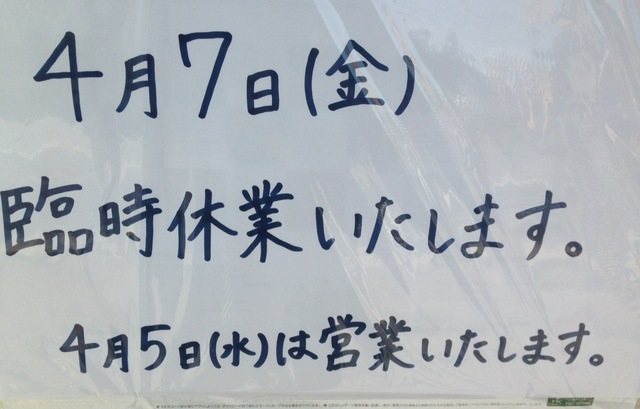 4月7日(金)
臨時休業いたします。
4月5日(水)は営業いたします。